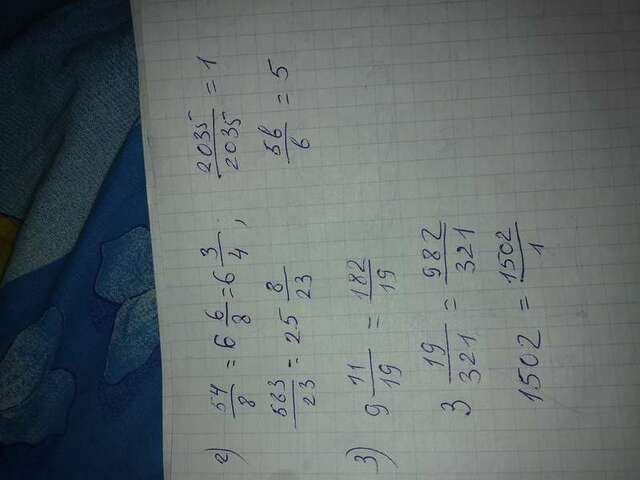 2) 54/8 = 6 6/8 = 6 3/4 ; 2035/2035 = 1
583/23 = 25 8/23 5b/b = 5
3) 9 11/19 = 182/19
3 19/321 = 982/321
1502 = 1502/1